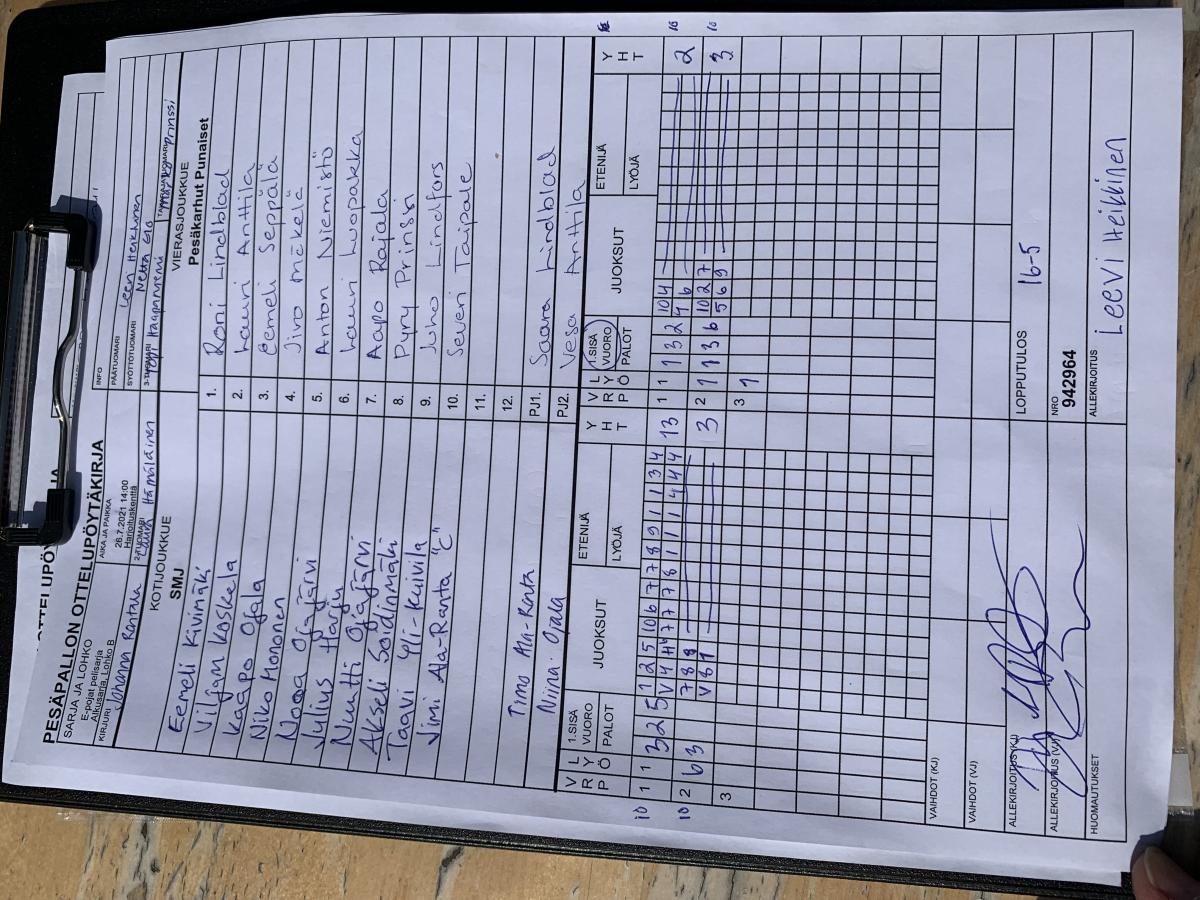 PESÄPALLON OTTELUPÖYTÄKIRJA
SARJA JA LOHKO
E-pojat pelisarja
Alkusarja, Lohko B
AIKA JA PAIKKA
26.7.2021 14:00
Harjoituskenttä
INFO
PÄÄTUOMARI
Leevi Heikkinen
SYÖTTÖTUOMARI
KIRJURI
Johanna Rantala
2-TUOMARI
Hämäläinen
3-TUOMARI
Haapaniemi
Prinssi
KOTIJOUKKUE
SMJ
VIERASJOUKKUE
Pesäkarhut Punaiset
Eemeli Kivimäki
1. Roni Lindblad
Viljami Koskela
2. Lauri Anttila
Kaapo Ojala
3. Eemeli Seppälä
Niko Mononen
4. Jiro Mäkelä
Nooa Ojajärvi
5. Anton Niemistö
Julius Harju
6. Lauri Luopakka
Nuutti Ojajärvi
7. Aapo Rajala
Akseli Soidinmäki
8. Pyry Prinssi
Taavi Yli-Kuivila
9. Juho Lindfors
Jimi Ala-Ranta "C"
10. Severi Taipale
11.
12.
Timo Ala-Ranta
PJ1. Saara Lindblad
Niina Ojala
PJ2. Vesa Anttila
V R P
L Y Ö
1.SISÄ VUORO
PALOT
JUOKSUT
ETENIJÄ
LYÖJÄ
Y H T
V R P
L Y Ö
1.SISÄ VUORO
PALOT
JUOKSUT
ETENIJÄ
LYÖJÄ
Y H T
10 1 1 3 2 5 1 2 5 10 6 7 7 8 9 1 1 3 4 13
1 1 1 3 2 10 4 2
10 2 6 3 7 8 8 3
2 1 1 3 6 10 2 7 3
V 8 1
5 6 9
3
3 1
VAIHDOT (KJ)
VAIHDOT (VJ)
ALLEKIRJOITUS (KJ)
LOPPUTULOS 16-5
ALLEKIRJOITUS (VJ)
NRO
942964
HUOMAUTUKSET
ALLEKIRJOITUS
Leevi Heikkinen